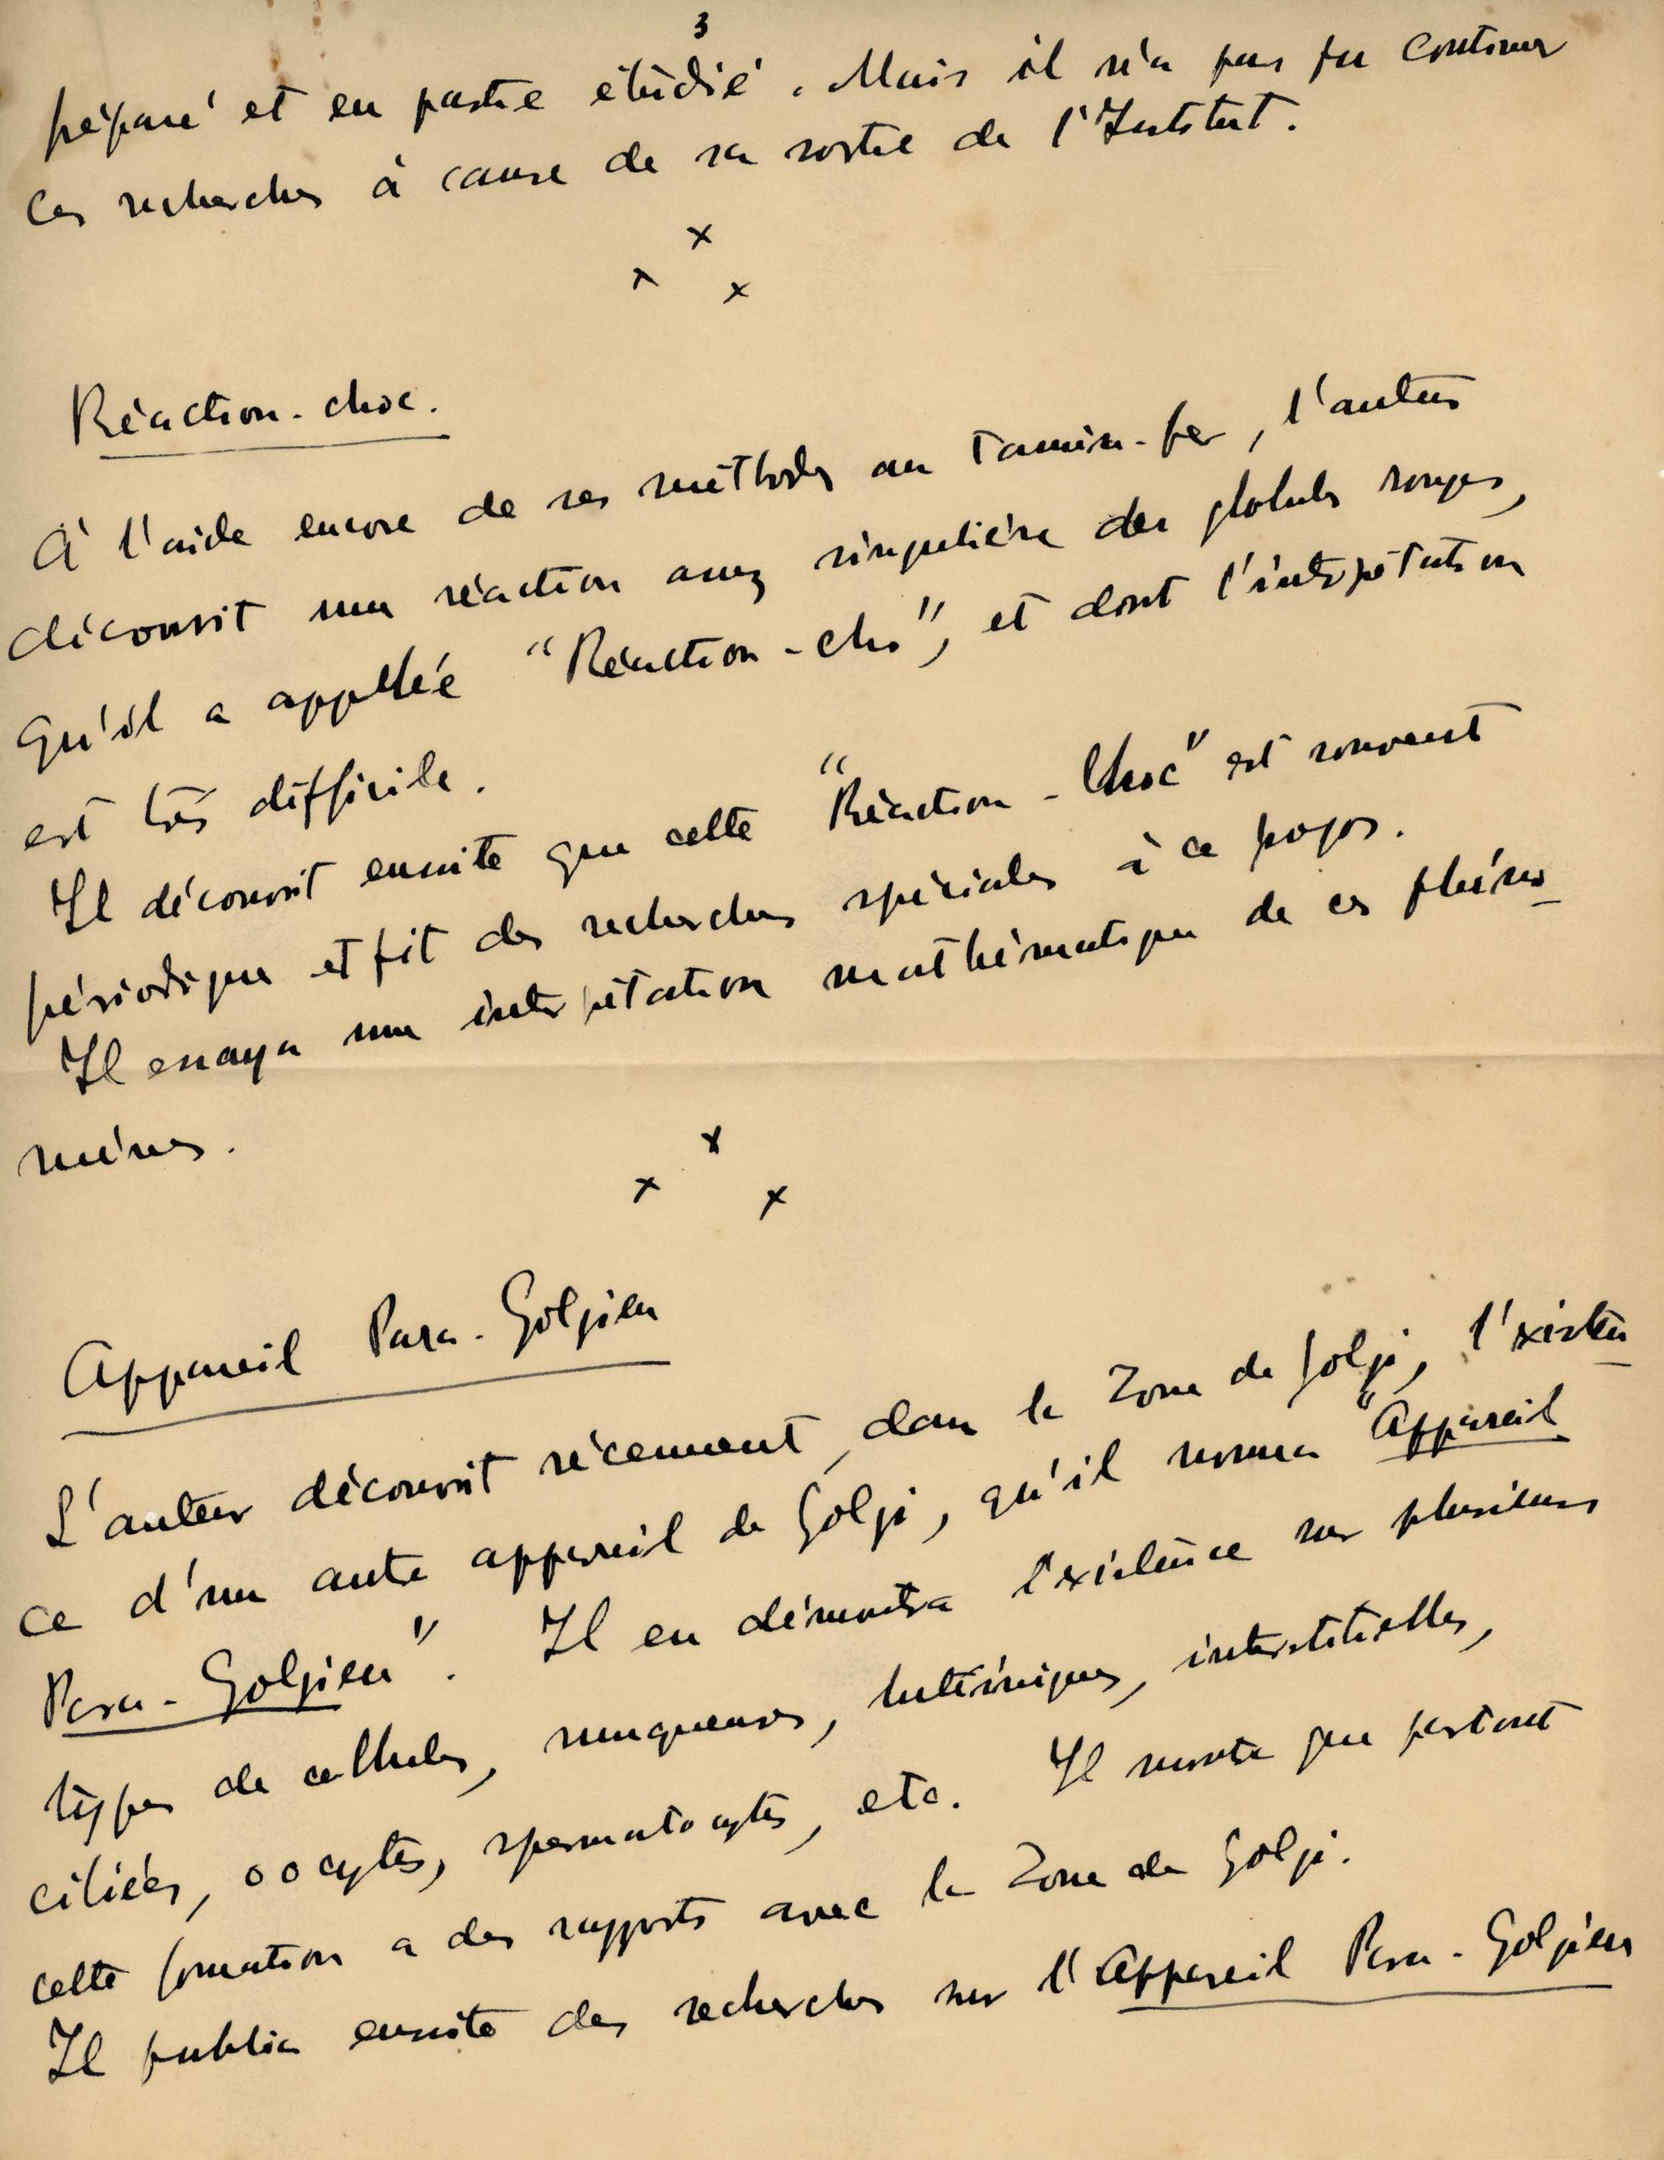 3
préparé et en partie étudié. Mais il n'a pas pu continuer
ces recherches à cause de sa sortie de l'Institut.
x
x x
Réaction-choc.
À l'aide encore de ses méthodes au Tannin-fer, l'auteur
découvrit une réaction assez singulière des globules rouges,
qu'il a appellée "Réaction-choc", et dont l'interprétation
est très difficile.
Il découvrit ensuite que cette "Réaction-Choc" est souvent
périodique et fit des recherches spéciales à ce propos.
Il essaya une interprétation mathématique de ces phéno-
mènes.
x
x x
Appareil Para-Golgien
L'auteur découvrit récemment, dans la Zone de Golgi, l'existen-
ce d'un autre appareil de Golgi, qu'il nomma "Appareil
Para-Golgien". Il en démontra l'existence sur plusieurs
types de cellules, muqueuses, lutéiniques, interstitielles,
ciliées, oocytes, spermatocytes, etc. Il montra que partout
cette formation a des rapports avec la Zone de Golgi.
Il publia ensuite des recherches sur l'Appareil Para-Golgien